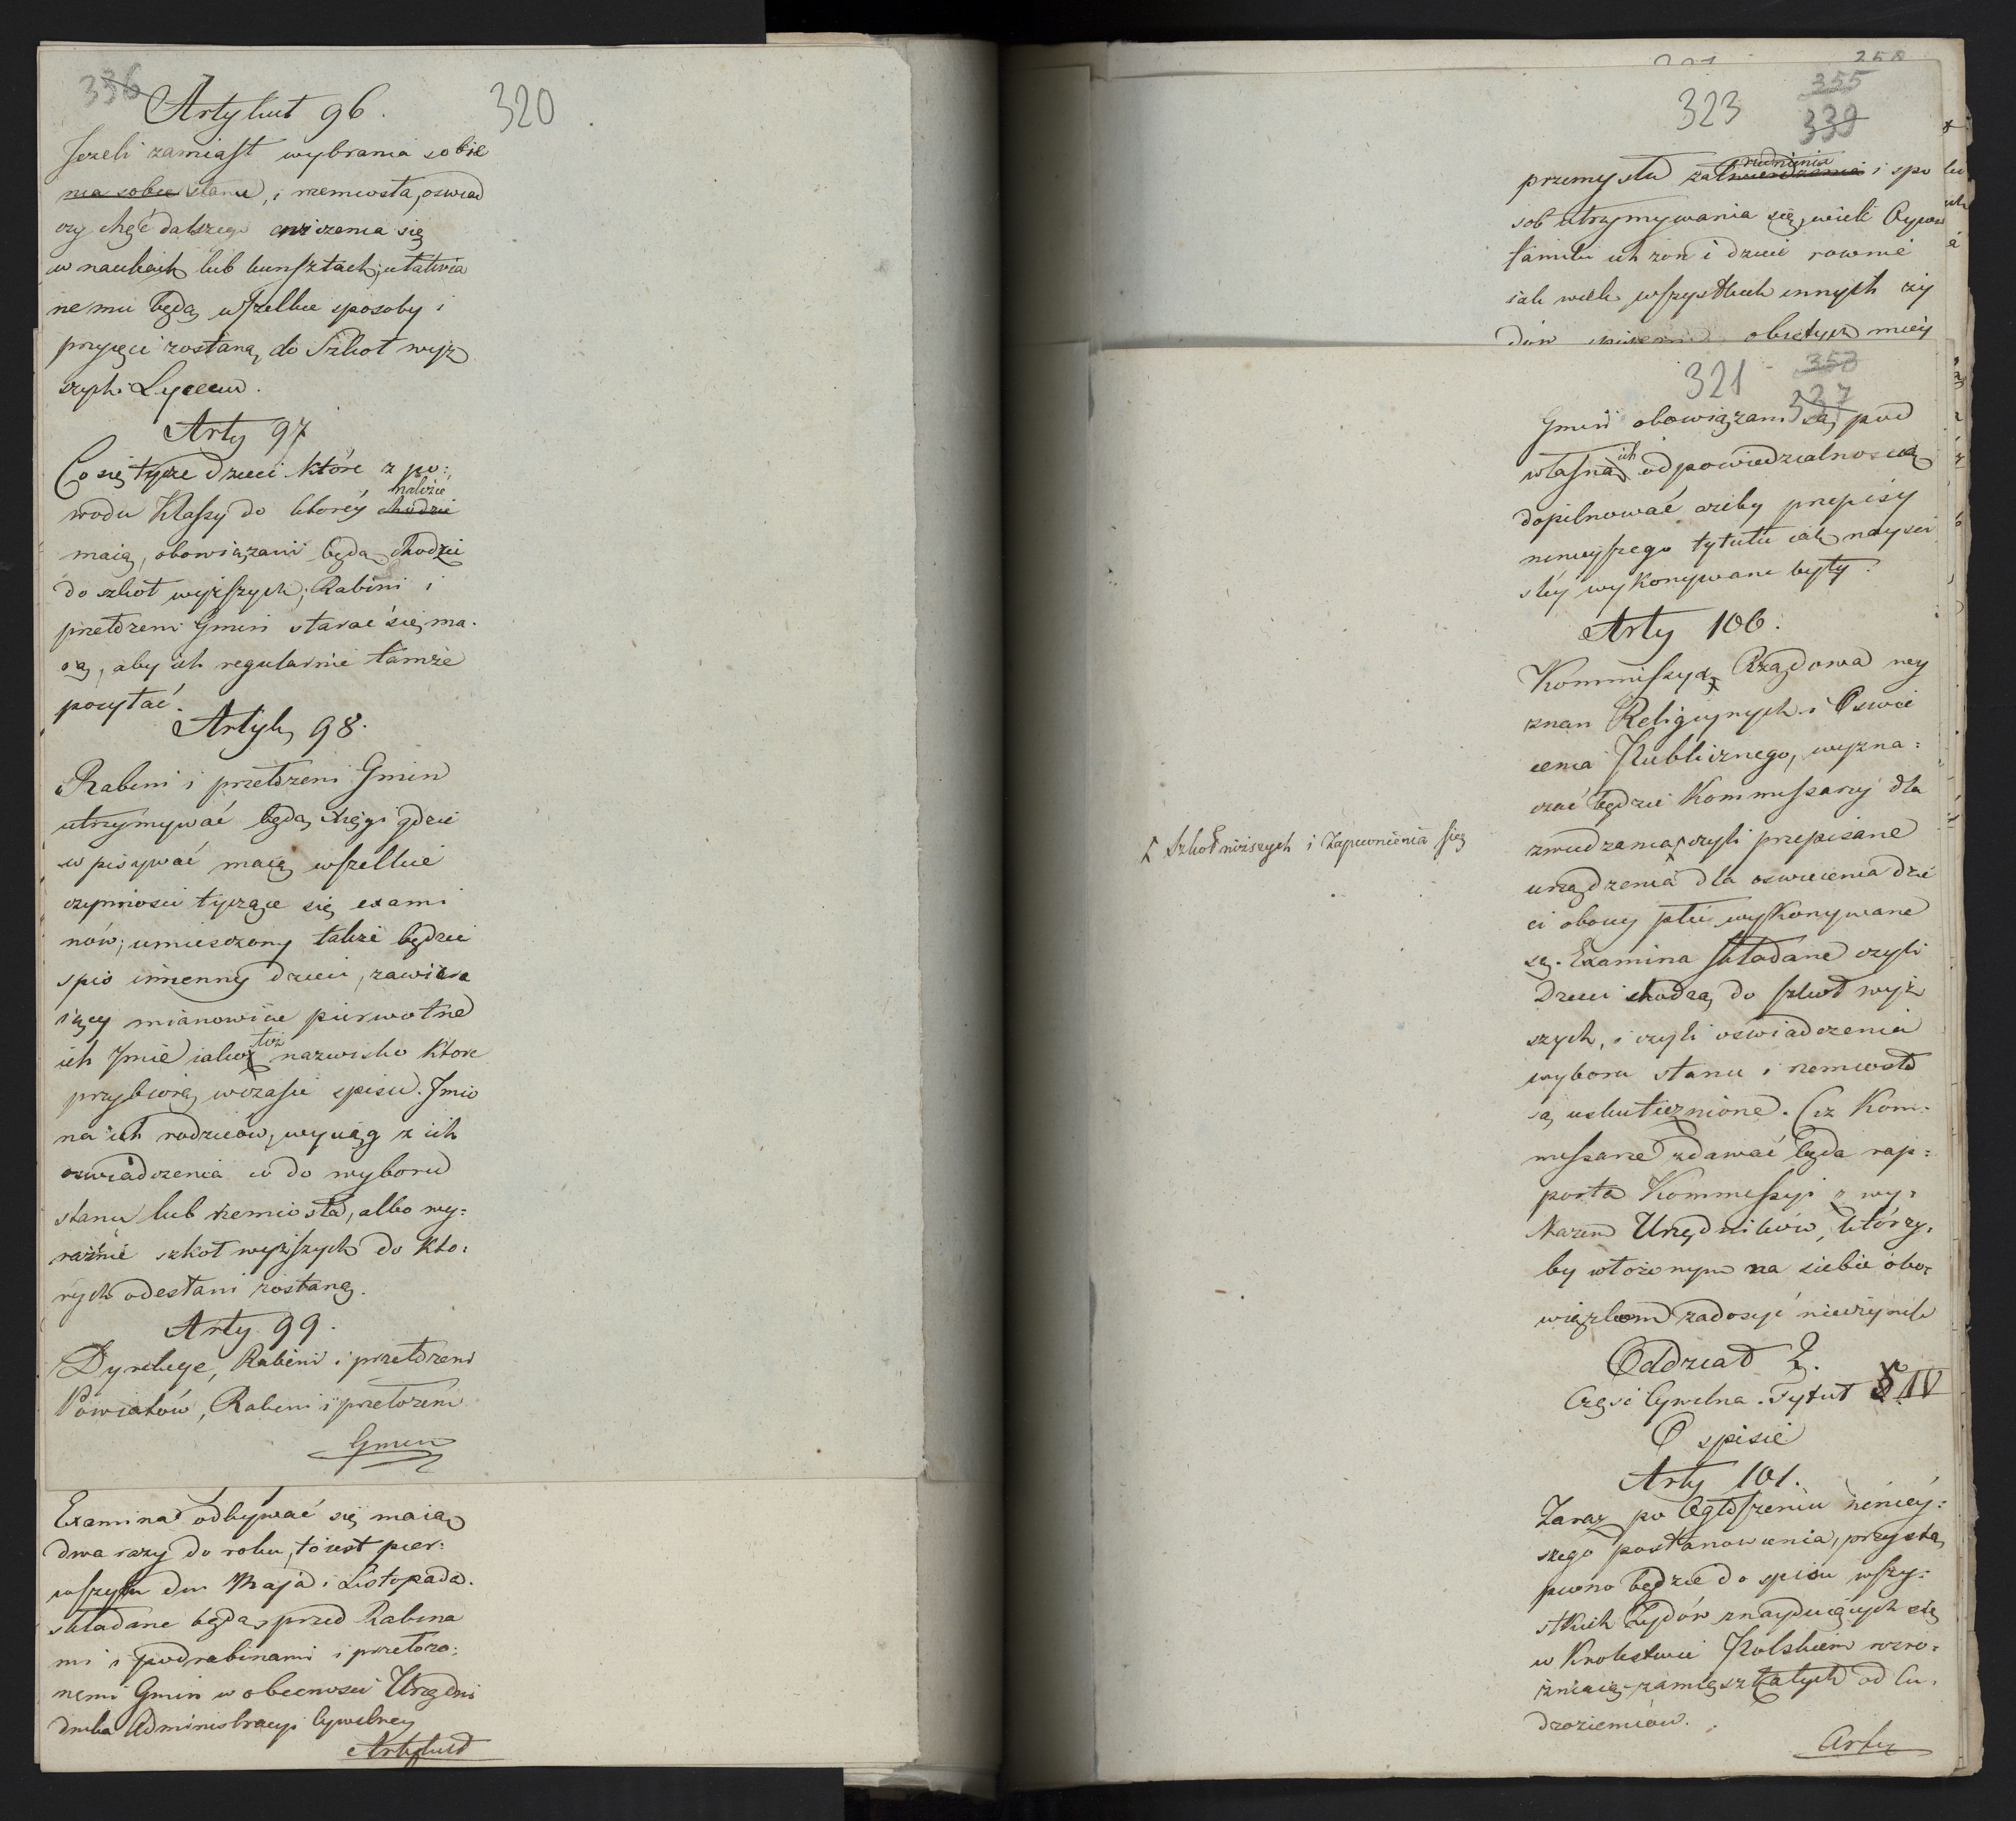 336
320
Artykuł 96.
Jezeli zamiast wybrania sobie
nia sobie stanu, i rzemiosła, oswiad
czy chęć dalszego cwiczenia się
w naukach lub kunsztach; ułatwia
ne mu będą wszelkie sposoby i
przyięci zostaną do Szkoł wyż
szych i Lyceum.
Arty 97
Co się tycze dzieci które z po:
należeć
wodu Klassy do ktorey chodzić
maią, obowiązani będą chodzić
do szkoł wyższych; Rabini i
przełożeni Gmin starac się ma.
ią, aby ich regularnie tamże
posyłać.
Artyk 98.
Rabini i przełożeni Gmin
utrzymywać będą xięgi gdzie
wpisywać maią wszelkie
czynności tyczące się exami
nów; umieszczony także będzie
spis imienny dzieci, zawiera
iący mianowicie pierwotne
też
ich Jmie iako nazwisko ktore
przybiorą wczasie spisu. Jmio
na ich rodziców, wyciąg z ich
oswiadczenia co do wyboru
stanu lub rzemiosła, albo wy:
raźnie szkoł wyższych do kto:
rych odesłani zostaną.
Arty 99.
Dyrekcye, Rabini i przełożeni
Powiatów, Rabini i przełożeni
Gmin
Examina odbywać się maią
dwa razy do roku, to iest pier:
wszych dni Maja i Listopada.
składane będą przed Rabina
mi i podrabinami i przełożo:
nemi Gmin w obecności Urzędni
dnika Administracyi Cywilney
Artykuł
258
355
323
339
rudnienia
przemysłu zatwierdzenia i spo
sob utrzymywania się, wiele
familii ich żon i dzieci rownie
iak wiek wszystkich innych ży
dów obiętych miey
321
353
337
Gmin obowiązani są pod
ich
własną odpowiedzialnoscią
dopilnować ażeby przepisy
ninieyszego tytułu iak nayści
sley wykonywane były.
Arty 100.
Kommissya Rządowa wy
znań Religiynych i Oswie
cenia Publicznego, wyzna:
czać będzie Kommissarzy dla
szkoł niższych i Zapewnienia się
zwiedzania czyli przepisane
urządzenia dla oswiecenia dzie
ci oboiey płci wykonywane
są. Examina składane czyli
Dzieci chodzą do szkoł wyż
szych, i czyli oswiadczenia
wyboru stanu i rzemiosł
są uskutecznione. Ciż Kom:
missarze zdawać będą rap:
porta Kommissyi z wy:
kazem Urzędników, którzy:
by włożonym na siebie obo:
wiązkom zadosyć nieczynili
Oddział 2.
Częsć Cywilna. Tytuł IV
O spisie
Arty 101.
Zaraz po Ogłoszeniu niniey:
szego postanowienia, przystą
piono będzie do spisu wszy:
stkich Żydów znayduiących się
w Krolestwie Polskiem rozro:
żniaiąc zamięszkałych od Cu:
dzoziemców.
Arty